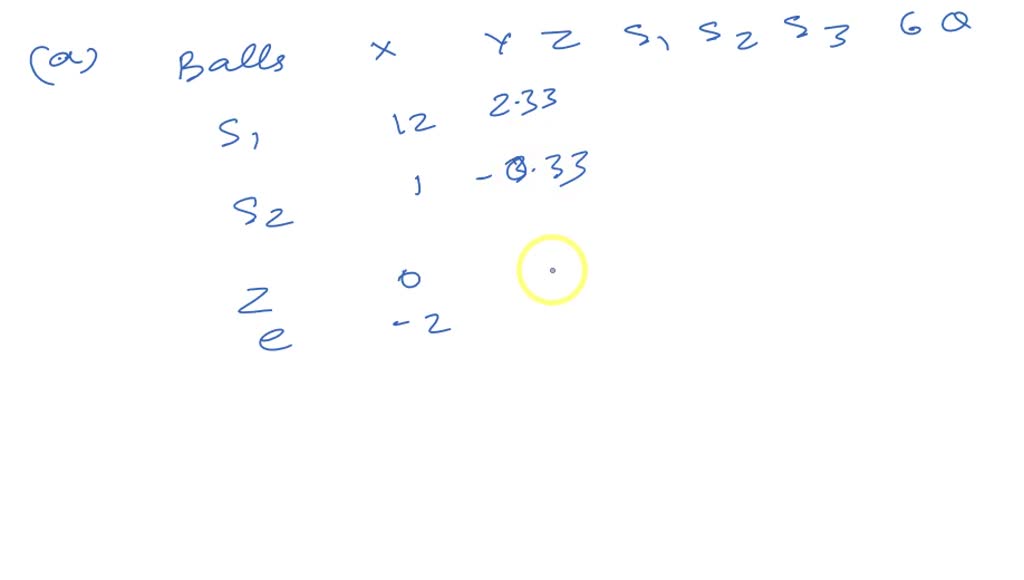 (a) Balls X Y Z S1 S2 S3 6 Q
S1 12 2.33
S2 1 - .33
Z 0
e -2